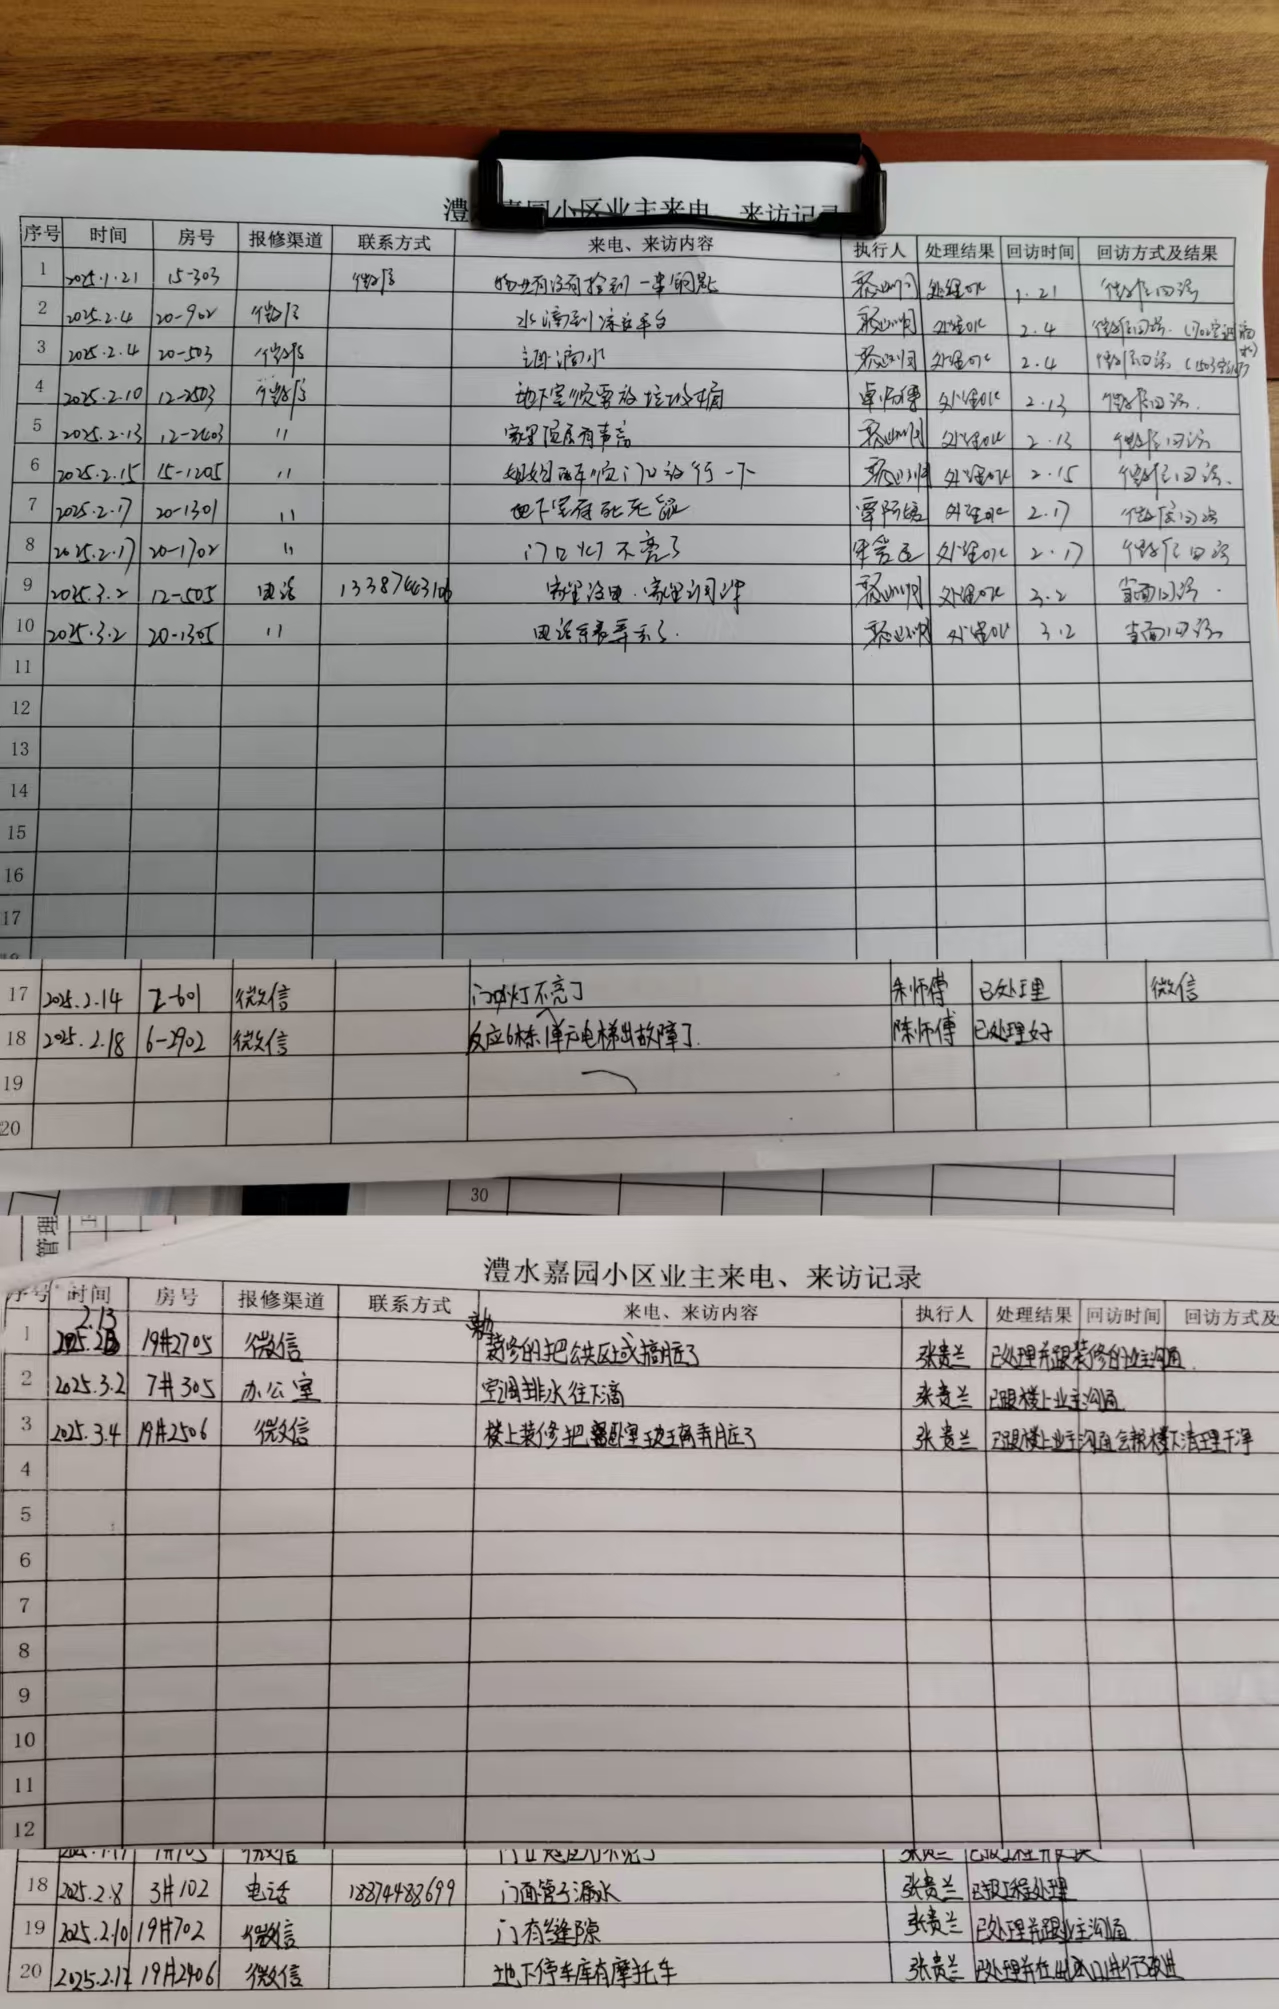 澧水嘉园小区业主来电、来访记录
序号 时间 房号 报修渠道 联系方式 来电、来访内容 执行人 处理结果 回访时间 回访方式及结果
1 2025.1.21 15-303 微信 物业有没有捡到一串钥匙 处理OK 1.21 微信回话
2 2025.2.4 20-902 微信 水滴到 平台 处理OK 2.4 微信回话
3 2025.2.4 20-503 微信 滴水 处理OK 2.4 微信回话
4 2025.2.10 12-2503 微信 地下室须要放垃圾桶 覃师傅 处理OK 2.13 微信回话.
5 2025.2.13 12-2403 〃 家里 有声音 处理OK 2.13 微信回话
6 2025.2.15 15-1205 〃 门口放行一下 处理OK 2.15 微信回话.
7 2025.2.17 20-1301 〃 地下室有死老鼠 处理OK 2.17 微信回话
8 2025.2.17 20-1702 〃 门口灯不亮了 处理OK 2.17 微信回话
9 2025.3.2 12-505 电话 家里没电. 处理OK 3.2 当面回话.
10 2025.3.2 20-1305 〃 处理OK 3.2 当面回话
11
12
13
14
15
16
17
17 2025.2.14 2-601 微信 灯不亮了 朱师傅 已处理 微信
18 2025.2.18 6-2902 微信 反应6栋1单元电梯出故障了. 陈师傅 已处理好
19
20
30
管理
澧水嘉园小区业主来电、来访记录
序号 时间 房号 报修渠道 联系方式 来电、来访内容 执行人 处理结果 回访时间 回访方式及
2.13
1 19#2705 微信 装修的把公共区域搞脏了 张贵兰 已处理并跟装修的业主沟通
2 2025.3.2 7#305 办公室 空调排水往下滴 张贵兰 已跟楼上业主沟通
3 2025.3.4 19#2506 微信 楼上装修把 卧室玻璃弄脏了 张贵兰 已跟楼上业主沟通会帮楼下清理干净
4
5
6
7
8
9
10
11
12
18 2025.2.8 3#102 电话 18874483699 门面管子漏水 张贵兰 已报工程处理
19 2025.2.10 19#702 微信 门有缝隙 张贵兰 已处理并跟业主沟通
20 2025.2.12 19#2406 微信 地下停车库有摩托车 张贵兰 已处理并在出入口进行改进